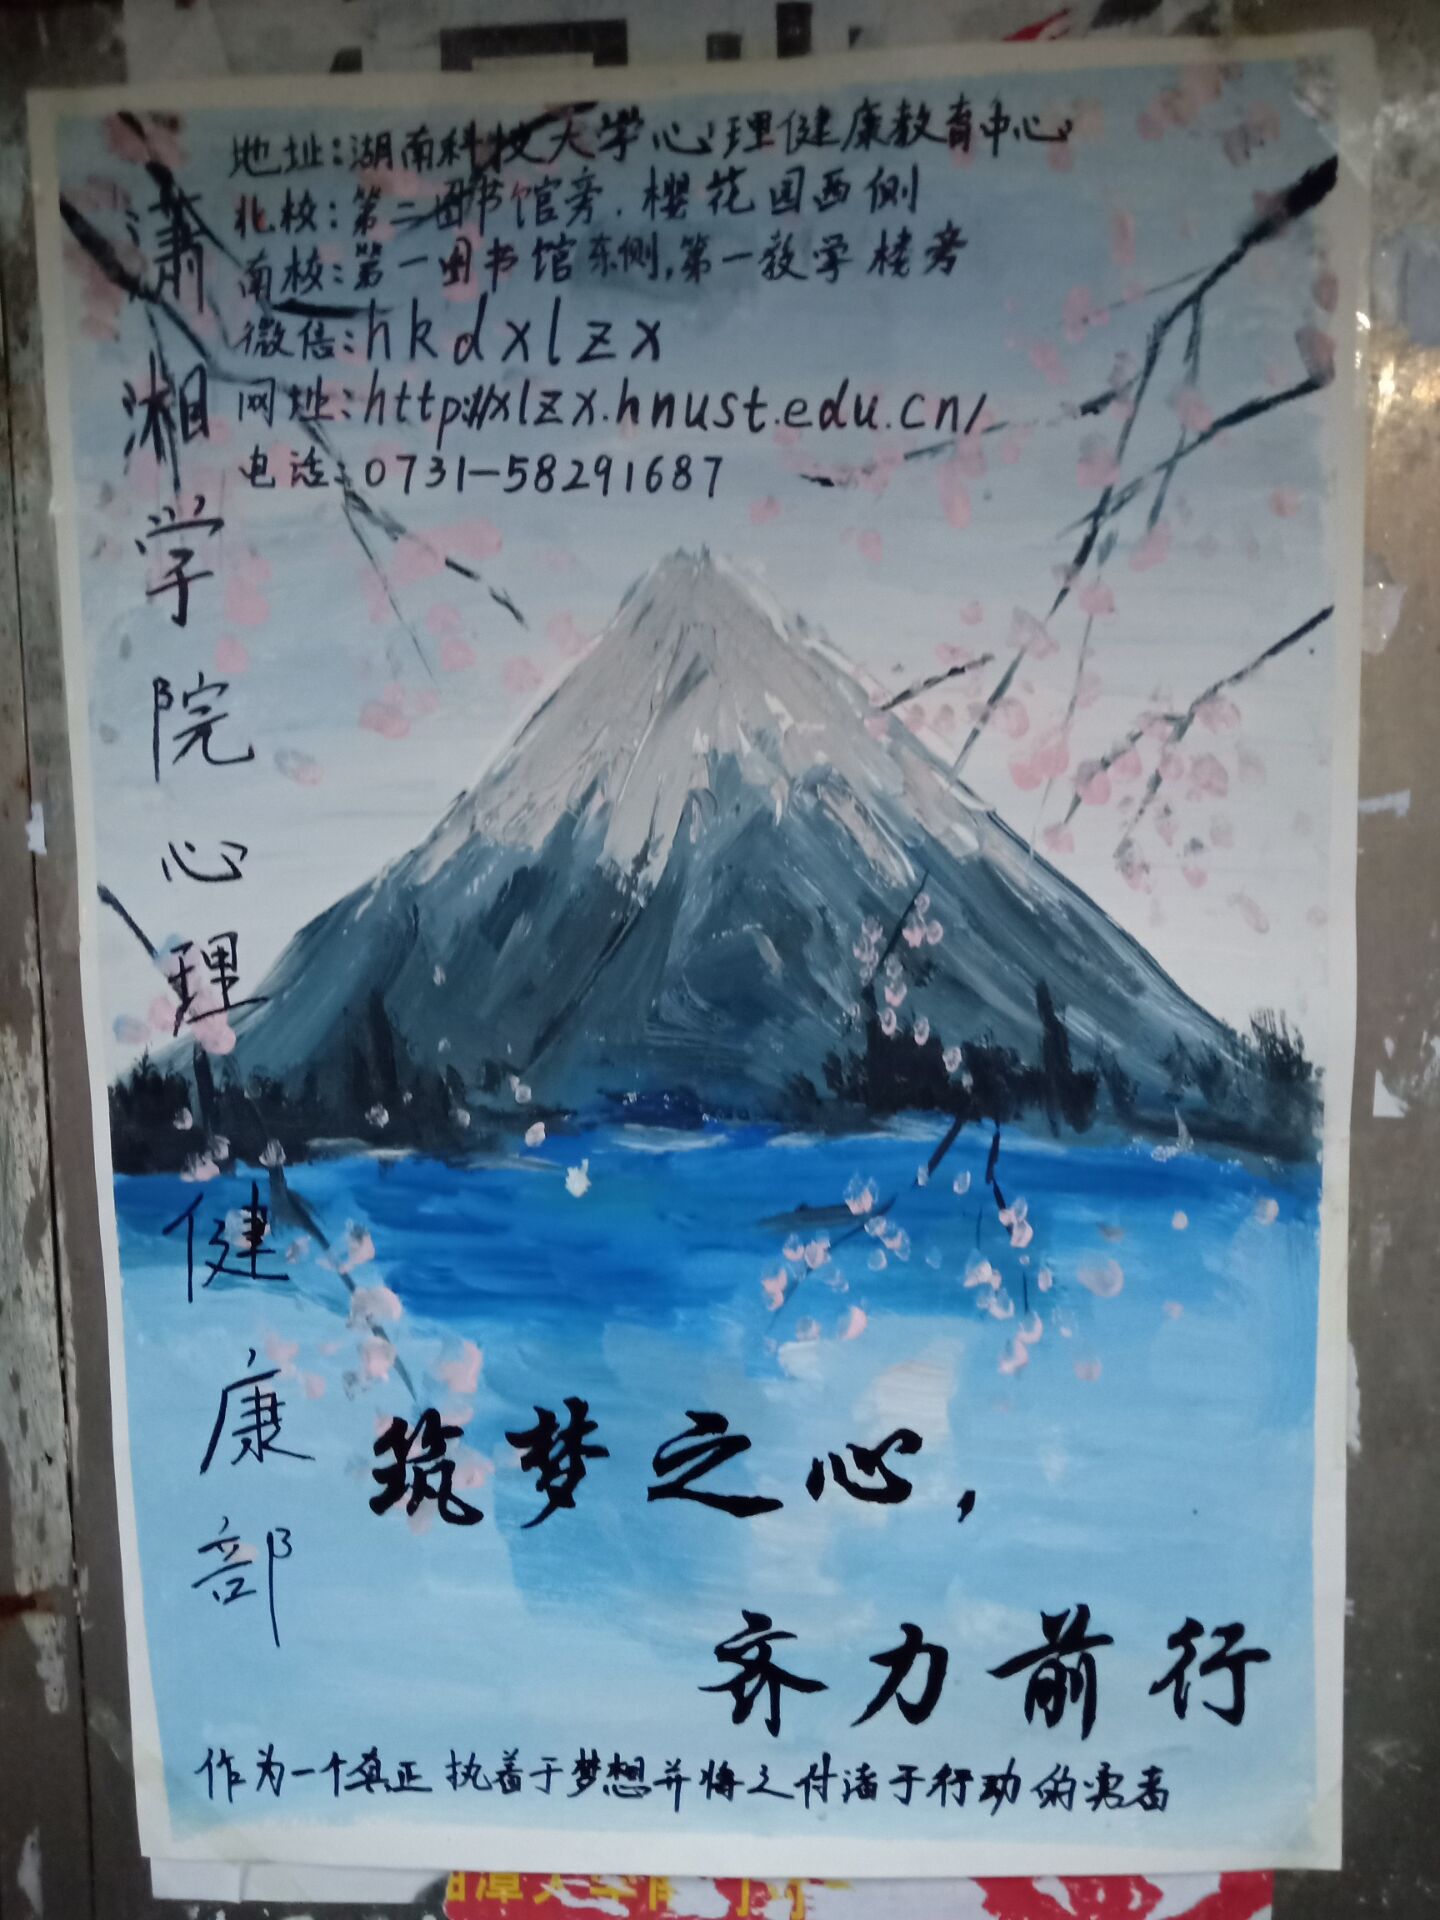 地址:湖南科技大学心理健康教育中心
北校:第二图书馆旁.樱花园西侧
南校:第一图书馆东侧,第一教学楼旁
微信:hkdxlzx
网址:http://xlzx.hnust.edu.cn/
电话:0731-58291687
潇湘学院心理健康部
筑梦之心,
齐力前行
作为一个真正执着于梦想并将之付诸于行动的